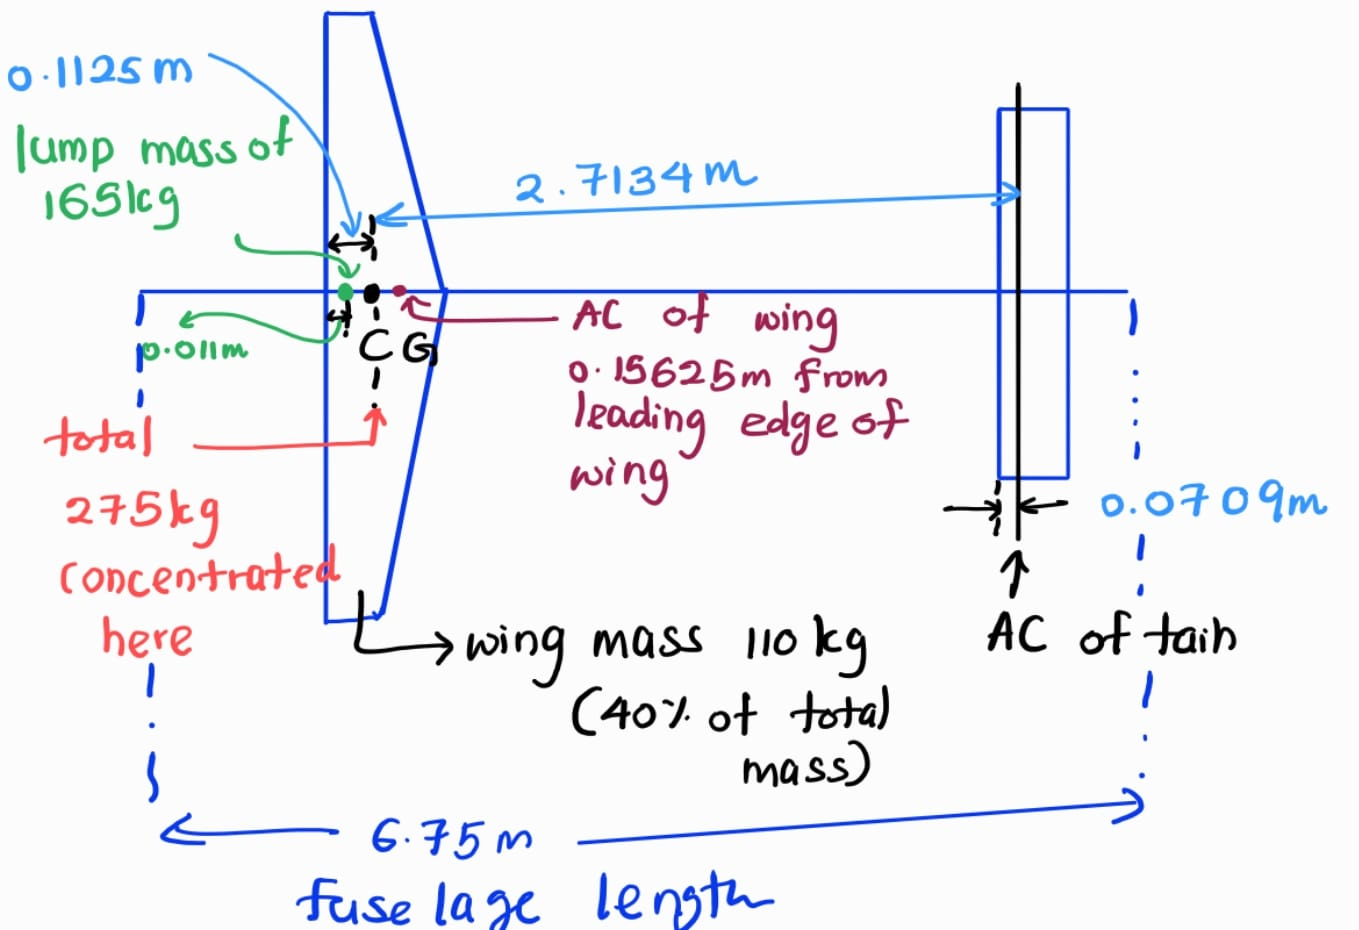 0.1125 m
lump mass of
165kg
2.7134 m
0.011m
CG
AC of wing
0.15625m from
leading edge of
wing
total
275kg
concentrated
here
wing mass 110 kg
(40% of total
mass)
0.0709m
AC of tain
6.75 m
fuselage length